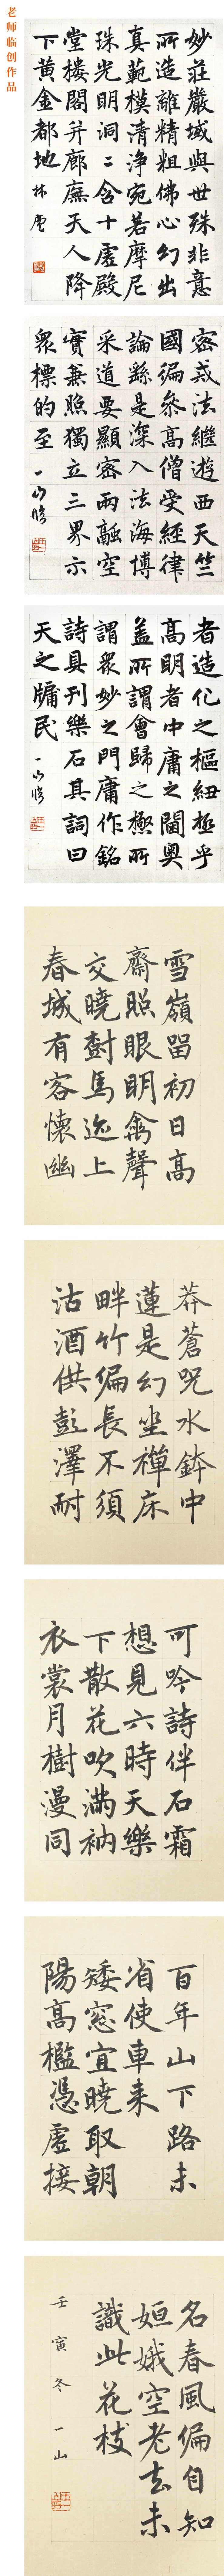 老师临创作品
妙莊嚴域與世殊非意
所造離精粗佛心幻出
真範模清淨宛若摩尼
珠光明洞二含十虛殿
堂樓閣并廊廡天人降
下黃金都地
林度
密戒法繼遊西天竺
國徧參高僧受經律
論繇是深入法海博
采道要顯密兩融空
實兼照獨立三界示
眾標的至
一山臨
者造化之樞紐極乎
高明者中庸之閫奧
蓋所謂會歸之極所
謂眾妙之門庸作銘
詩具刊樂石其詞曰
天之牖民
一山臨
雪嶺留初日高
齋照眼明禽聲
交曉樹馬迹上
春城有客懷幽
莽蒼咒水鉢中
蓮是幻坐禪床
畔竹徧長不須
沽酒供彭澤耐
可吟詩伴石霜
想見六時天樂
下散花吹滿衲
衣裳月樹漫同
百年山下路未
省使車来
矮窓宜曉取朝
陽高檻憑虛接
名春風偏自知
姮娥空老去未
識此花枝
壬寅冬一山